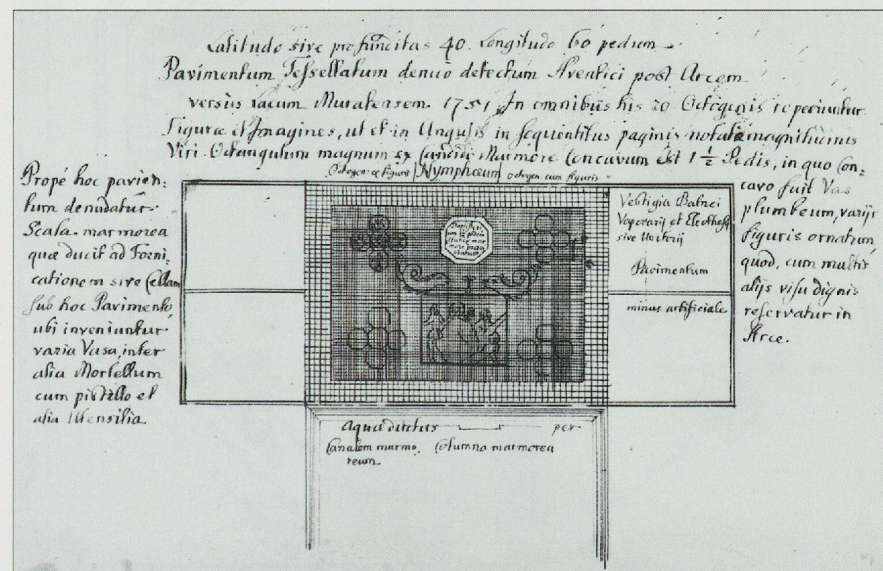 Latitudo sive profuncitas 40. Longitudo 60 pedum.
Pavimentum Tessellatum denuò detectum Aventici post Arcem
versùs lacum Muratensem. 1751. In omnibus his 20 Octogonis reperiuntur
Figuræ et Imagines, ut et in Ungulis in sequentibus paginis notatæ magnitudinis
Viri. Octangulum magnum ex Candido Marmore Concavum est 1 1/2 Pedis, in quo Con-
cavo fuit Vas
plumbeum, varijs
figuris ornatum
quod, cum multis
alijs visu dignis
reservatur in
Arce.
Propè hoc pavien:
tum denudatur
Scala marmorea
quæ ducit ad Forni:
cationem sive Cellam
sub hoc Pavimento
ubi inveniuntur
varia Vasa, inter
alia Mortellum
cum pistillo et
alia Utensilia.
Octogon: cum figuris Nymphæum octogon. cum figuris
Vestigia Balnei
Vaporarij et
sive Unctorij
Pavimentum
minus artificiale
Aquæductus per
Canalem marmo- Columna marmorea
reum.